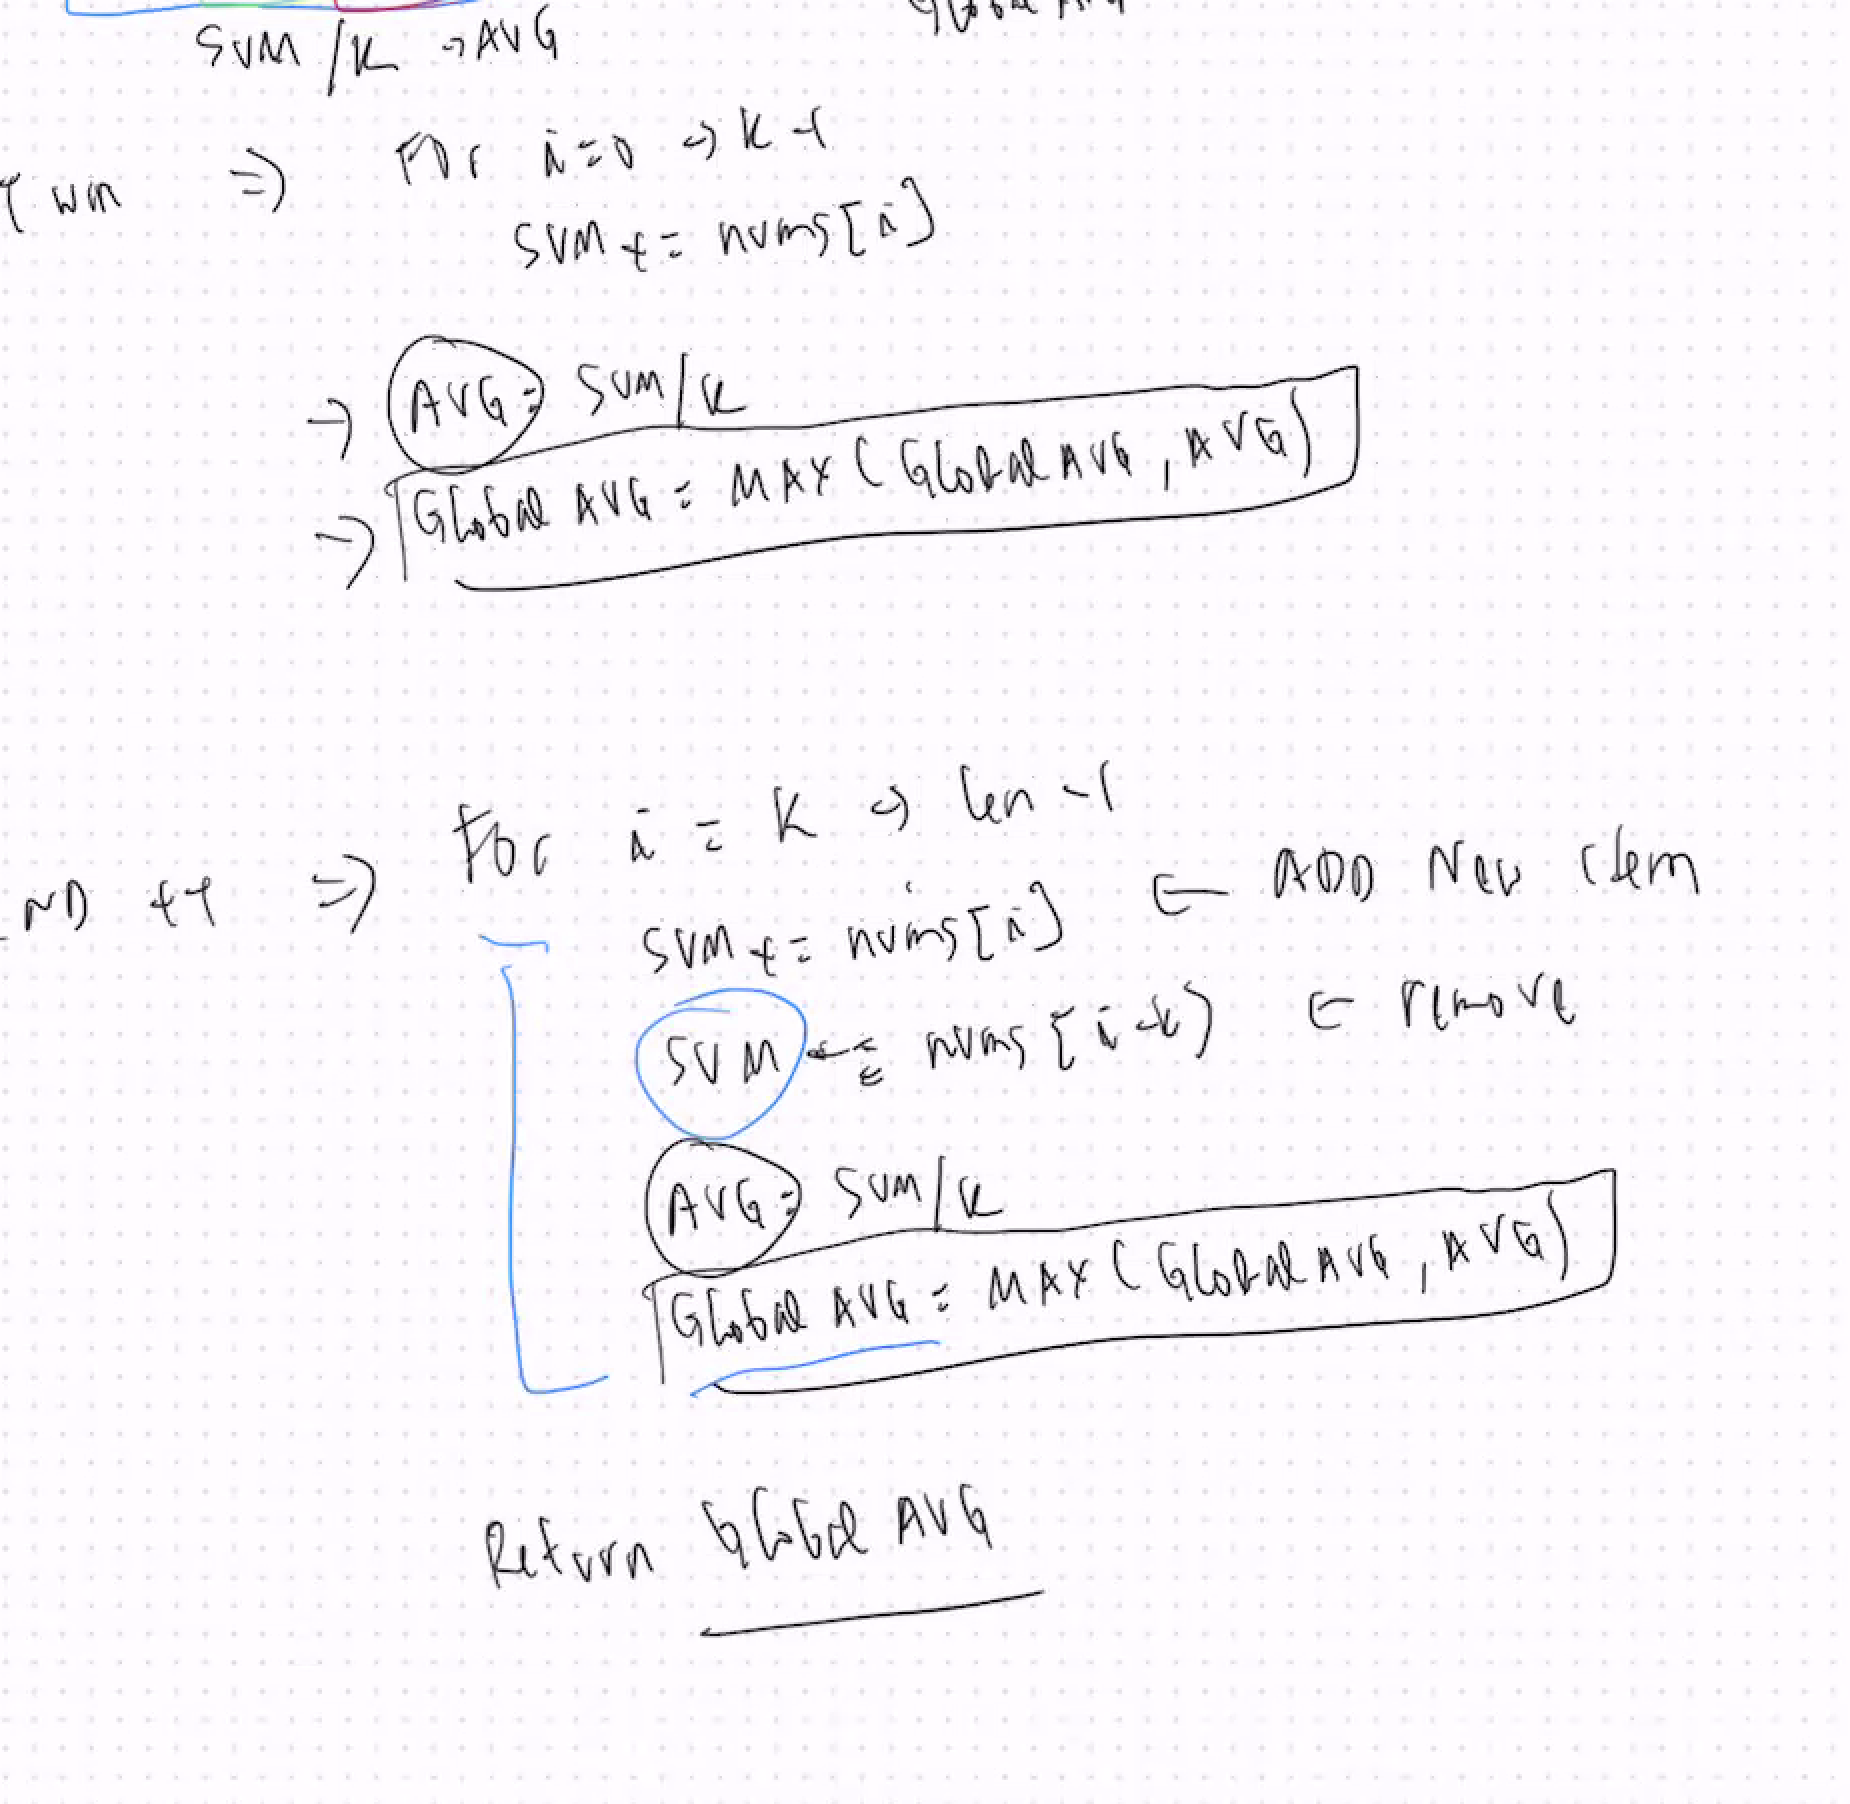 SUM / K → AVG
Global AVG
1 win ⇒ For i=0 → K-1
SUM += nums[i]
→ AVG = SUM/K
→ Global AVG = MAX ( Global AVG , AVG )
ND ++ ⇒ For i = K → len -1
SUM += nums[i] ← ADD New elem
SUM -= nums [i-k] ← remove
AVG = SUM/K
Global AVG = MAX ( Global AVG , AVG )
Return Global AVG